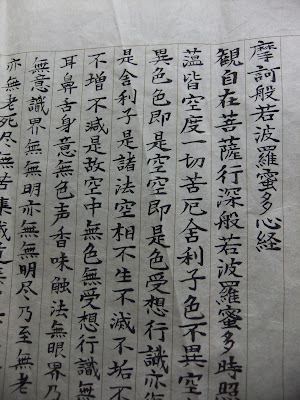 摩訶般若波羅蜜多心経
観自在菩薩行深般若波羅蜜多時照
蘊皆空度一切苦厄舎利子色不異空
異色色即是空空即是色受想行識亦
是舎利子是諸法空相不生不滅不垢不
不増不減是故空中無色無受想行識無
耳鼻舌身意無色声香味触法無眼界乃
無意識界無無明亦無無明尽乃至無老
亦無老死尽無苦集滅